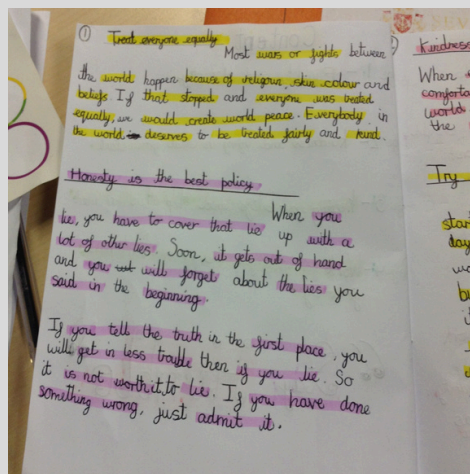 ① Treat everyone equally
Most wars or fights between
the world happen because of religion, skin colour and
beliefs If that stopped and everyone was treated
equally, we would create world peace. Everybody in
the world deserves to be treated fairly and kind.
Honesty is the best policy
When you
lie, you have to cover that lie up with a
lot of other lies. Soon, it gets out of hand
and you will forget about the lies you
said in the beginning.
If you tell the truth in the first place, you
will get in less trouble then if you lie. So
it is not worth it to lie. If you have done
something wrong, just admit it.
Kindness
When
comforta
world
the
Try
star
day